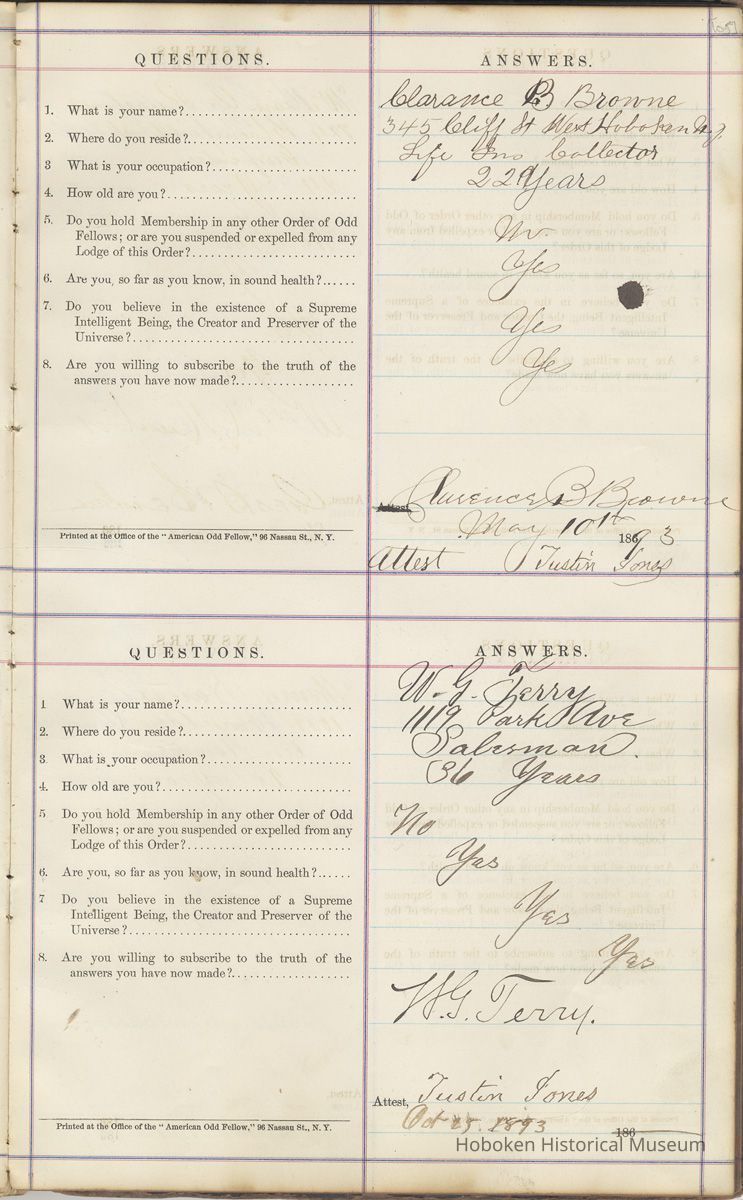 QUESTIONS.
1. What is your name?
2. Where do you reside?
3 What is your occupation?
4. How old are you?
5. Do you hold Membership in any other Order of Odd
Fellows; or are you suspended or expelled from any
Lodge of this Order?
6. Are you, so far as you know, in sound health?
7. Do you believe in the existence of a Supreme
Intelligent Being, the Creator and Preserver of the
Universe?
8. Are you willing to subscribe to the truth of the
answers you have now made?
Printed at the Office of the "American Odd Fellow," 96 Nassau St., N. Y.
ANSWERS.
Clarance B Browne
345 Cliff St West Hoboken N.J.
Life Ins Collector
22 Years
No.
Yes
Yes
Yes
Attest,
Clarence B Browne
May 10th 1893
Attest Justin Jones
QUESTIONS.
1 What is your name?
2. Where do you reside?
3. What is your occupation?
4. How old are you?
5 Do you hold Membership in any other Order of Odd
Fellows; or are you suspended or expelled from any
Lodge of this Order?
6. Are you, so far as you know, in sound health?
7 Do you believe in the existence of a Supreme
Intelligent Being, the Creator and Preserver of the
Universe?
8. Are you willing to subscribe to the truth of the
answers you have now made?
Printed at the Office of the "American Odd Fellow," 96 Nassau St., N. Y.
ANSWERS.
W. G. Terry
1119 Park Ave
Salesman.
36 Years
No
Yes
Yes
Yes
W. G. Terry.
Attest, Justin Jones
Oct 1893 186
Hoboken Historical Museum